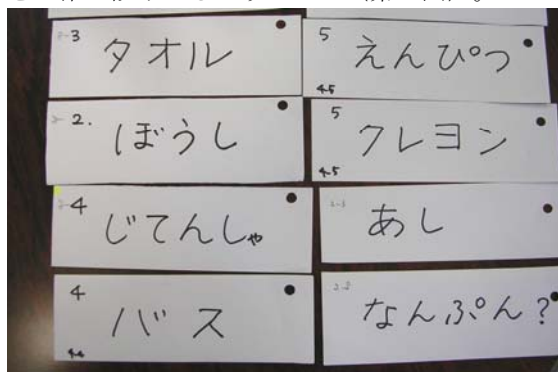 3
タオル
2.
ぼうし
4
じてんしゃ
4
バス
4-4
5
えんぴつ
4-5
5
クレヨン
4-5
2-3
あし
2-2
なんぷん?